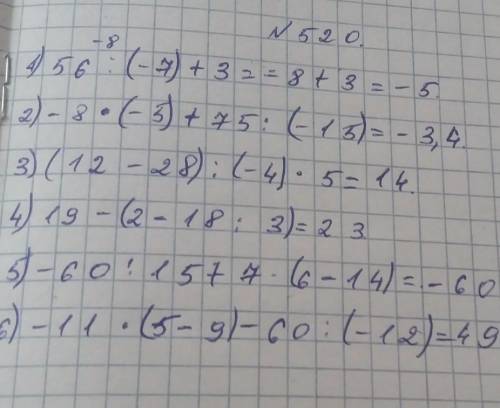 N 520.
-8
1) 56 : (-7) + 3 = = 8 + 3 = - 5.
2) - 8 • (-5) + 75 : (-15) = - 3,4.
3) (12 - 28) : (-4) • 5 = 14.
4) 19 - (2 - 18 : 3) = 23
5) - 60 : 15 + 7 · (6 - 14) = - 60
6) - 11 • (5 - 9) - 60 : (-12) = 49